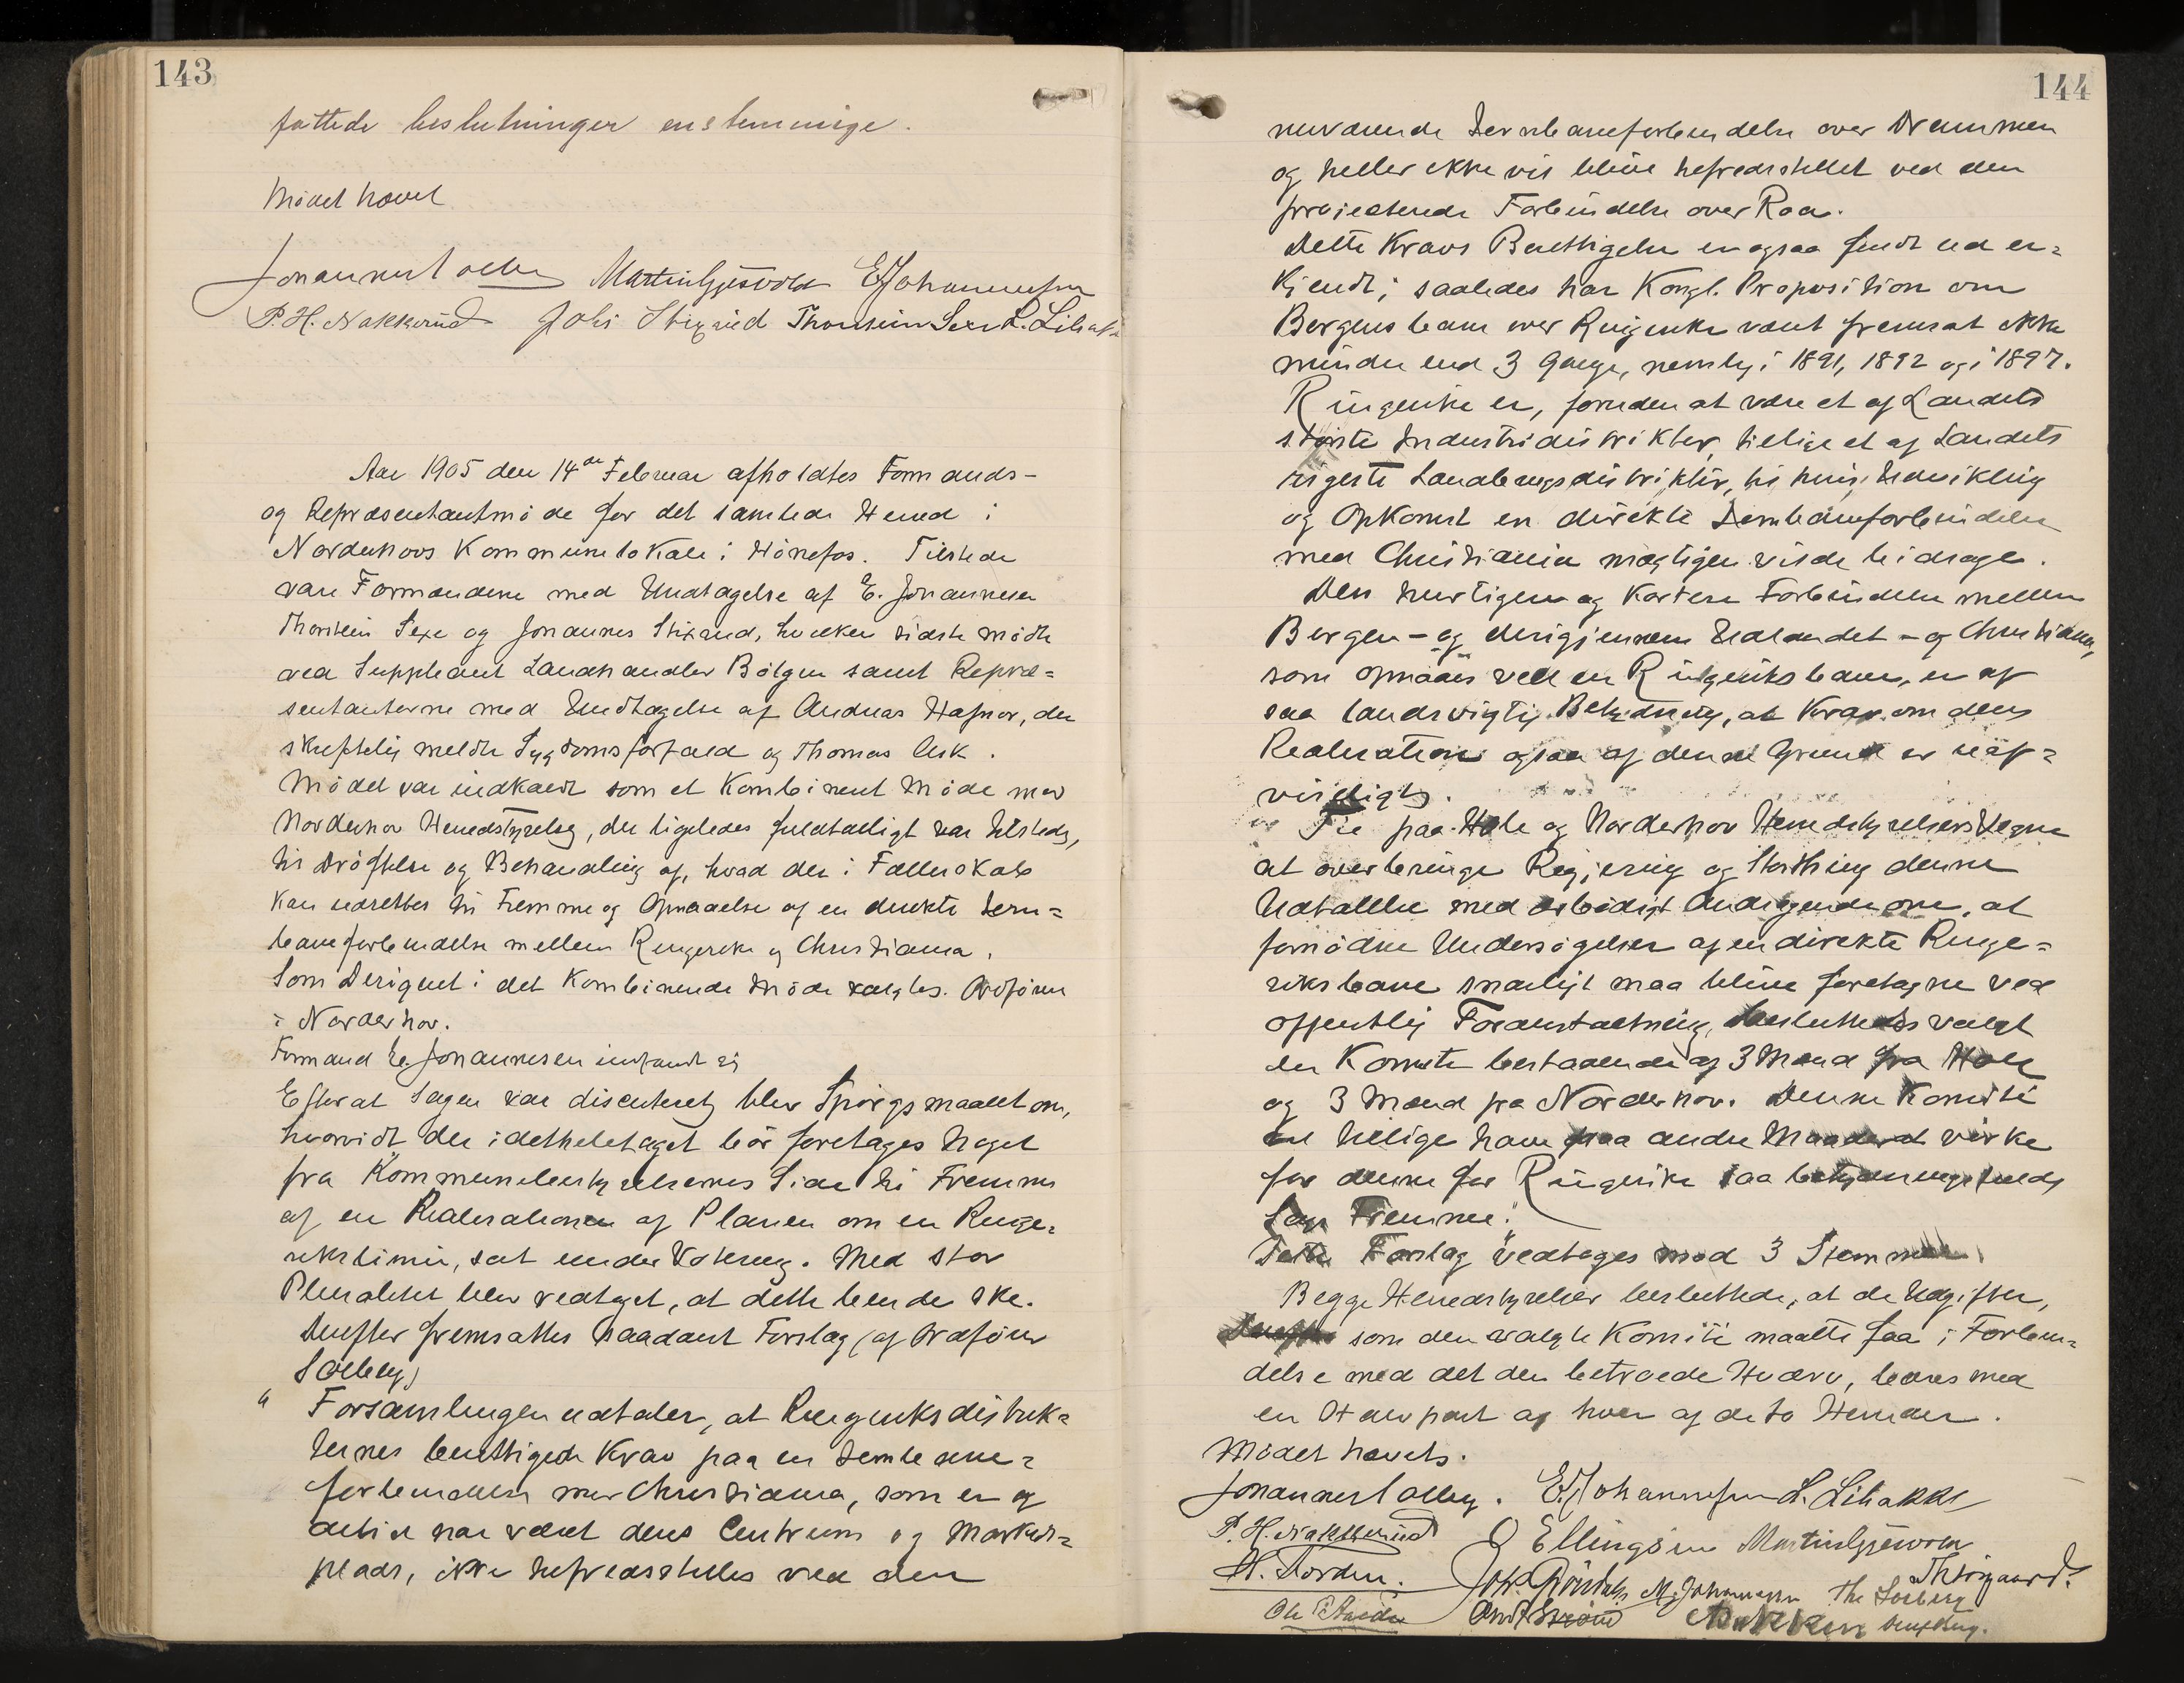 143
fattede beslutninger enstemmige.
Mødet hævet
Johannes Solberg Martin Gjesvold E Johannessen
P. H. Nakkerud Johs Stixrud Thorstein Sexe L. Libakke
Aar 1905 den 14de Februar afholdtes Formands-
og Repræsentantmøde for det samlede Herred i
Norderhovs Kommunelokale i Hønefos. Tilstede
vare Formændene med Undtagelse af E. Johannesen
Thorstein Sexe og Johannes Stixrud, hvilken sidste mødte
ved Suppleant Landhandler Bølgen samt Repræ=
sentanterne med Undtagelse af Andreas Hafnor, der
skriftelig meldte Sygdomsforfald og Thomas Ask.
Mødet var indkaldt som et Kombineret Møde med
Norderhov Herredstyrelse, der ligeledes fuldtalligt var tilstede,
til Drøftelse og Behandling af, hvad der i Fællesskab
kan udrettes til Fremme og Opnaaelse af en direkte Jern=
baneforbindelse mellem Ringerike og Christiania.
Som Dirigent i det Kombinerede Møde valgtes Ordføren
i Norderhov.
Formand E. Johannesen indfandt sig
Efterat Sagen var discuteret, blev Spørgsmaalet om,
hvorvidt der i det hele taget bør foretages Noget
fra Kommunebestyrelsernes Side til Fremme
af en Realisationen af Planen om en Ringe=
rikslinie, sat under Votering. Med stor
Pluralitet blev vedtaget, at dette burde ske.
Derefter fremsattes saadant Forslag (af Ordfører
Solberg)
" Forsamlingen udtaler, at Ringeriksdistrik=
ternes berettigede Krav paa en Jernbane=
forbindelse med Christiania, som er og
altid har været dens Centrum og Markeds=
plads, ikke tilfredsstilles ved den
144
nuværende Jernbaneforbindelse over Drammen
og heller ikke vil blive tilfredsstillet ved den
projecterede Forbindelse over Roa.
Dette Kravs Berettigelse er ogsaa fuldt ud er=
kjendt; saaledes har Kongl. Proposition om
Bergensbane over Ringerike været fremsat ikke
mindre end 3 Gange, nemlig i 1891, 1892 og i 1897.
Ringerike er, foruden at være et af Landets
største Industridistrikter, tillige et af Landets
rigeste Landbrugsdistrikter, til hvis Udvikling
og Opkomst en direkte Jernbaneforbindelse
med Christiania mægtigen vilde bidrage.
Den hurtigere og kortere Forbindelse mellem
Bergen – og derigjennem Udlandet – og Christiania,
som opnaaes ved en Ringeriksbane, er af
saa landsvigtig Betydning, at Krav om dens
Realisation ogsaa af denne Grund er uaf=
viseligt.
Til paa Hole og Norderhov Herredstyrelsers Vegne
at overbringe Regjering og Storthing denne
Udtallelse med ærbødigt Andragende om, at
fornødne Undersøgelser af en direkte Ringe=
riksbane snarligt maa blive foretagne ved
offentlig Foranstaltning, besluttedes valgt
en Komite bestaaende af 3 Mænd fra Hole
og 3 Mænd fra Norderhov. Denne Komité
tillige have paa andre Maader at virke
for denne for Ringerike saa betydningsfulde
Sags Fremme."
Dette Forslag vedtages mod 3 Stemmer
Begge Herredstyrelser besluttede, at de Udgifter,
som den valgte Komité maatte faa i Forbin=
delse med det den betroede Hverv, bæres med
en Halvpart af hver af de to Herreder.
Mødet hævets.
Johannes Solberg. E. Johannessen L. Libakke
P. H. Nakkerud O Ellingsen Martin Gjesvold
H. Fjorden. Joh. Grøndahl M. Johannessen Th. Solberg